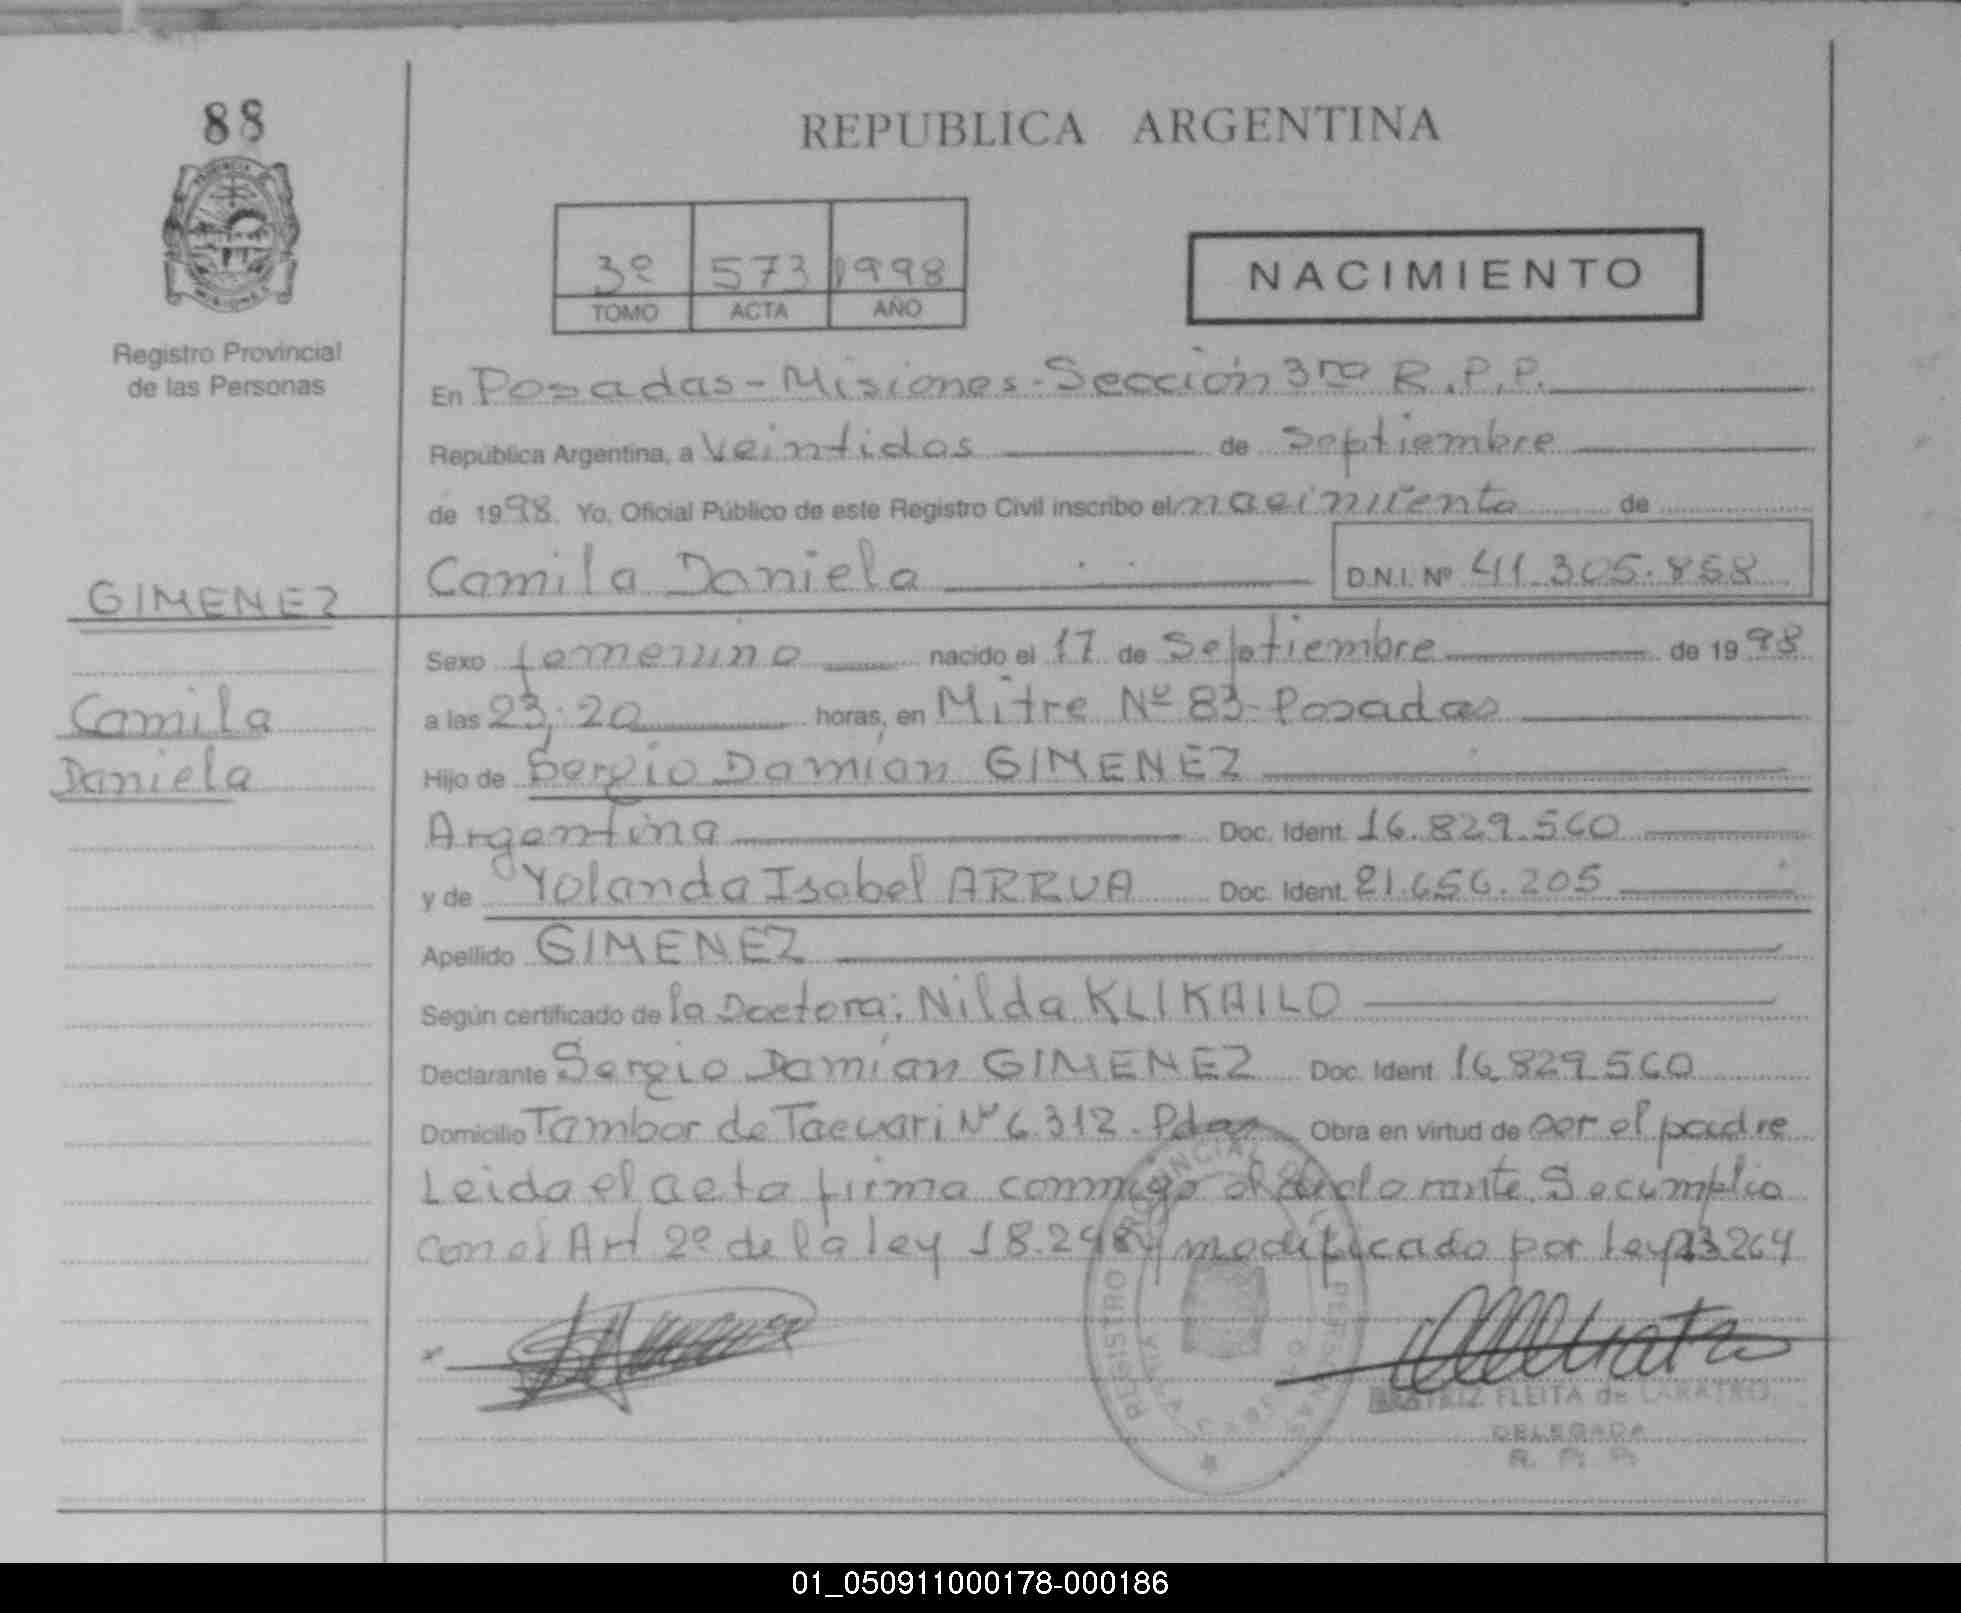 88
REPUBLICA ARGENTINA
3º 573 1998
TOMO ACTA AÑO
NACIMIENTO
Registro Provincial
de las Personas
En Posadas - Misiones - Sección 3ra R.P.P.
República Argentina, a Veintidos de Septiembre
de 1998. Yo, Oficial Público de este Registro Civil inscribo el nacimiento de
Camila Daniela D.N.I. Nº 41.305.858
GIMENEZ
Camila
Daniela
Sexo femenino nacido el 17 de Septiembre de 1998
a las 23:20 horas, en Mitre Nº 83- Posadas
Hijo de Sergio Damián GIMENEZ
Argentina Doc. Ident. 16.829.560
y de Yolanda Isabel ARRUA Doc. Ident. 21.656.205
Apellido GIMENEZ
Según certificado de la Doctora: Nilda KLIKAILO
Declarante Sergio Damián GIMENEZ Doc. Ident. 16.829.560
Domicilio Tambor de Tacuari Nº 6.312. Pdas Obra en virtud de ser el padre
Leida el acta firma conmigo el declarante. Se cumplio
con el Art 2º de la ley 18.248 modificado por Ley 23.264
REGISTRO PROVINCIAL DE PERSONAS
BEATRIZ FLEITA de CARATRO
DELEGADA
R. P. P.
01_050911000178-000186